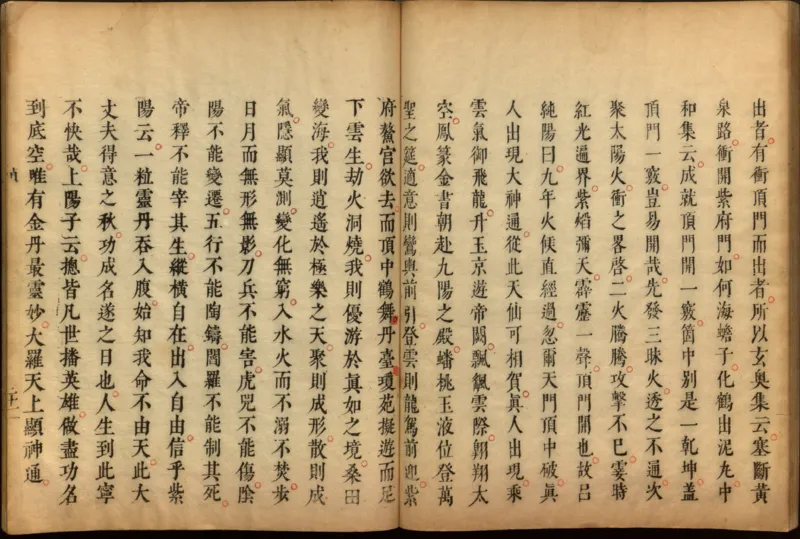 出者有衝頂門而出者所以玄奧集云塞斷黃
泉路衝開紫府門如何海蟾子化鶴出泥丸中
和集云成就頂門開一竅箇中别是一乾坤蓋
頂門一竅豈易開哉先發三昧火透之不通次
聚太陽火衝之畧啓二火騰騰攻擊不已霎時
紅光遍界紫熖彌天霹靂一聲頂門開也故吕
純陽曰九年火候直經過忽爾天門頂中破眞
人出現大神通從此天仙可相賀眞人出現乘
雲氣御飛龍升玉京遊帝闕飄飄雲際翱翔太
空鳳篆金書朝赴九陽之殿蟠桃玉液位登萬
聖之筵適意則鸞輿前引登雲則龍駕前迎紫
府鰲宫欲去而頂中鶴舞丹臺瓊苑擬遊而足
下雲生劫火洞燒我則優游於眞如之境桑田
變海我則逍遙於極樂之天聚則成形散則成
氣隱顯莫測變化無窮入水火而不溺不焚步
日月而無形無影刀兵不能害虎兕不能傷陰
陽不能變遷五行不能陶鑄閻羅不能制其死
帝釋不能宰其生縱横自在出入自由信乎紫
陽云一粒靈丹吞入腹始知我命不由天此大
丈夫得意之秋功成名遂之日也人生到此寧
不快哉上陽子云摠皆凡世播英雄做盡功名
到底空唯有金丹最靈妙大羅天上顯神通